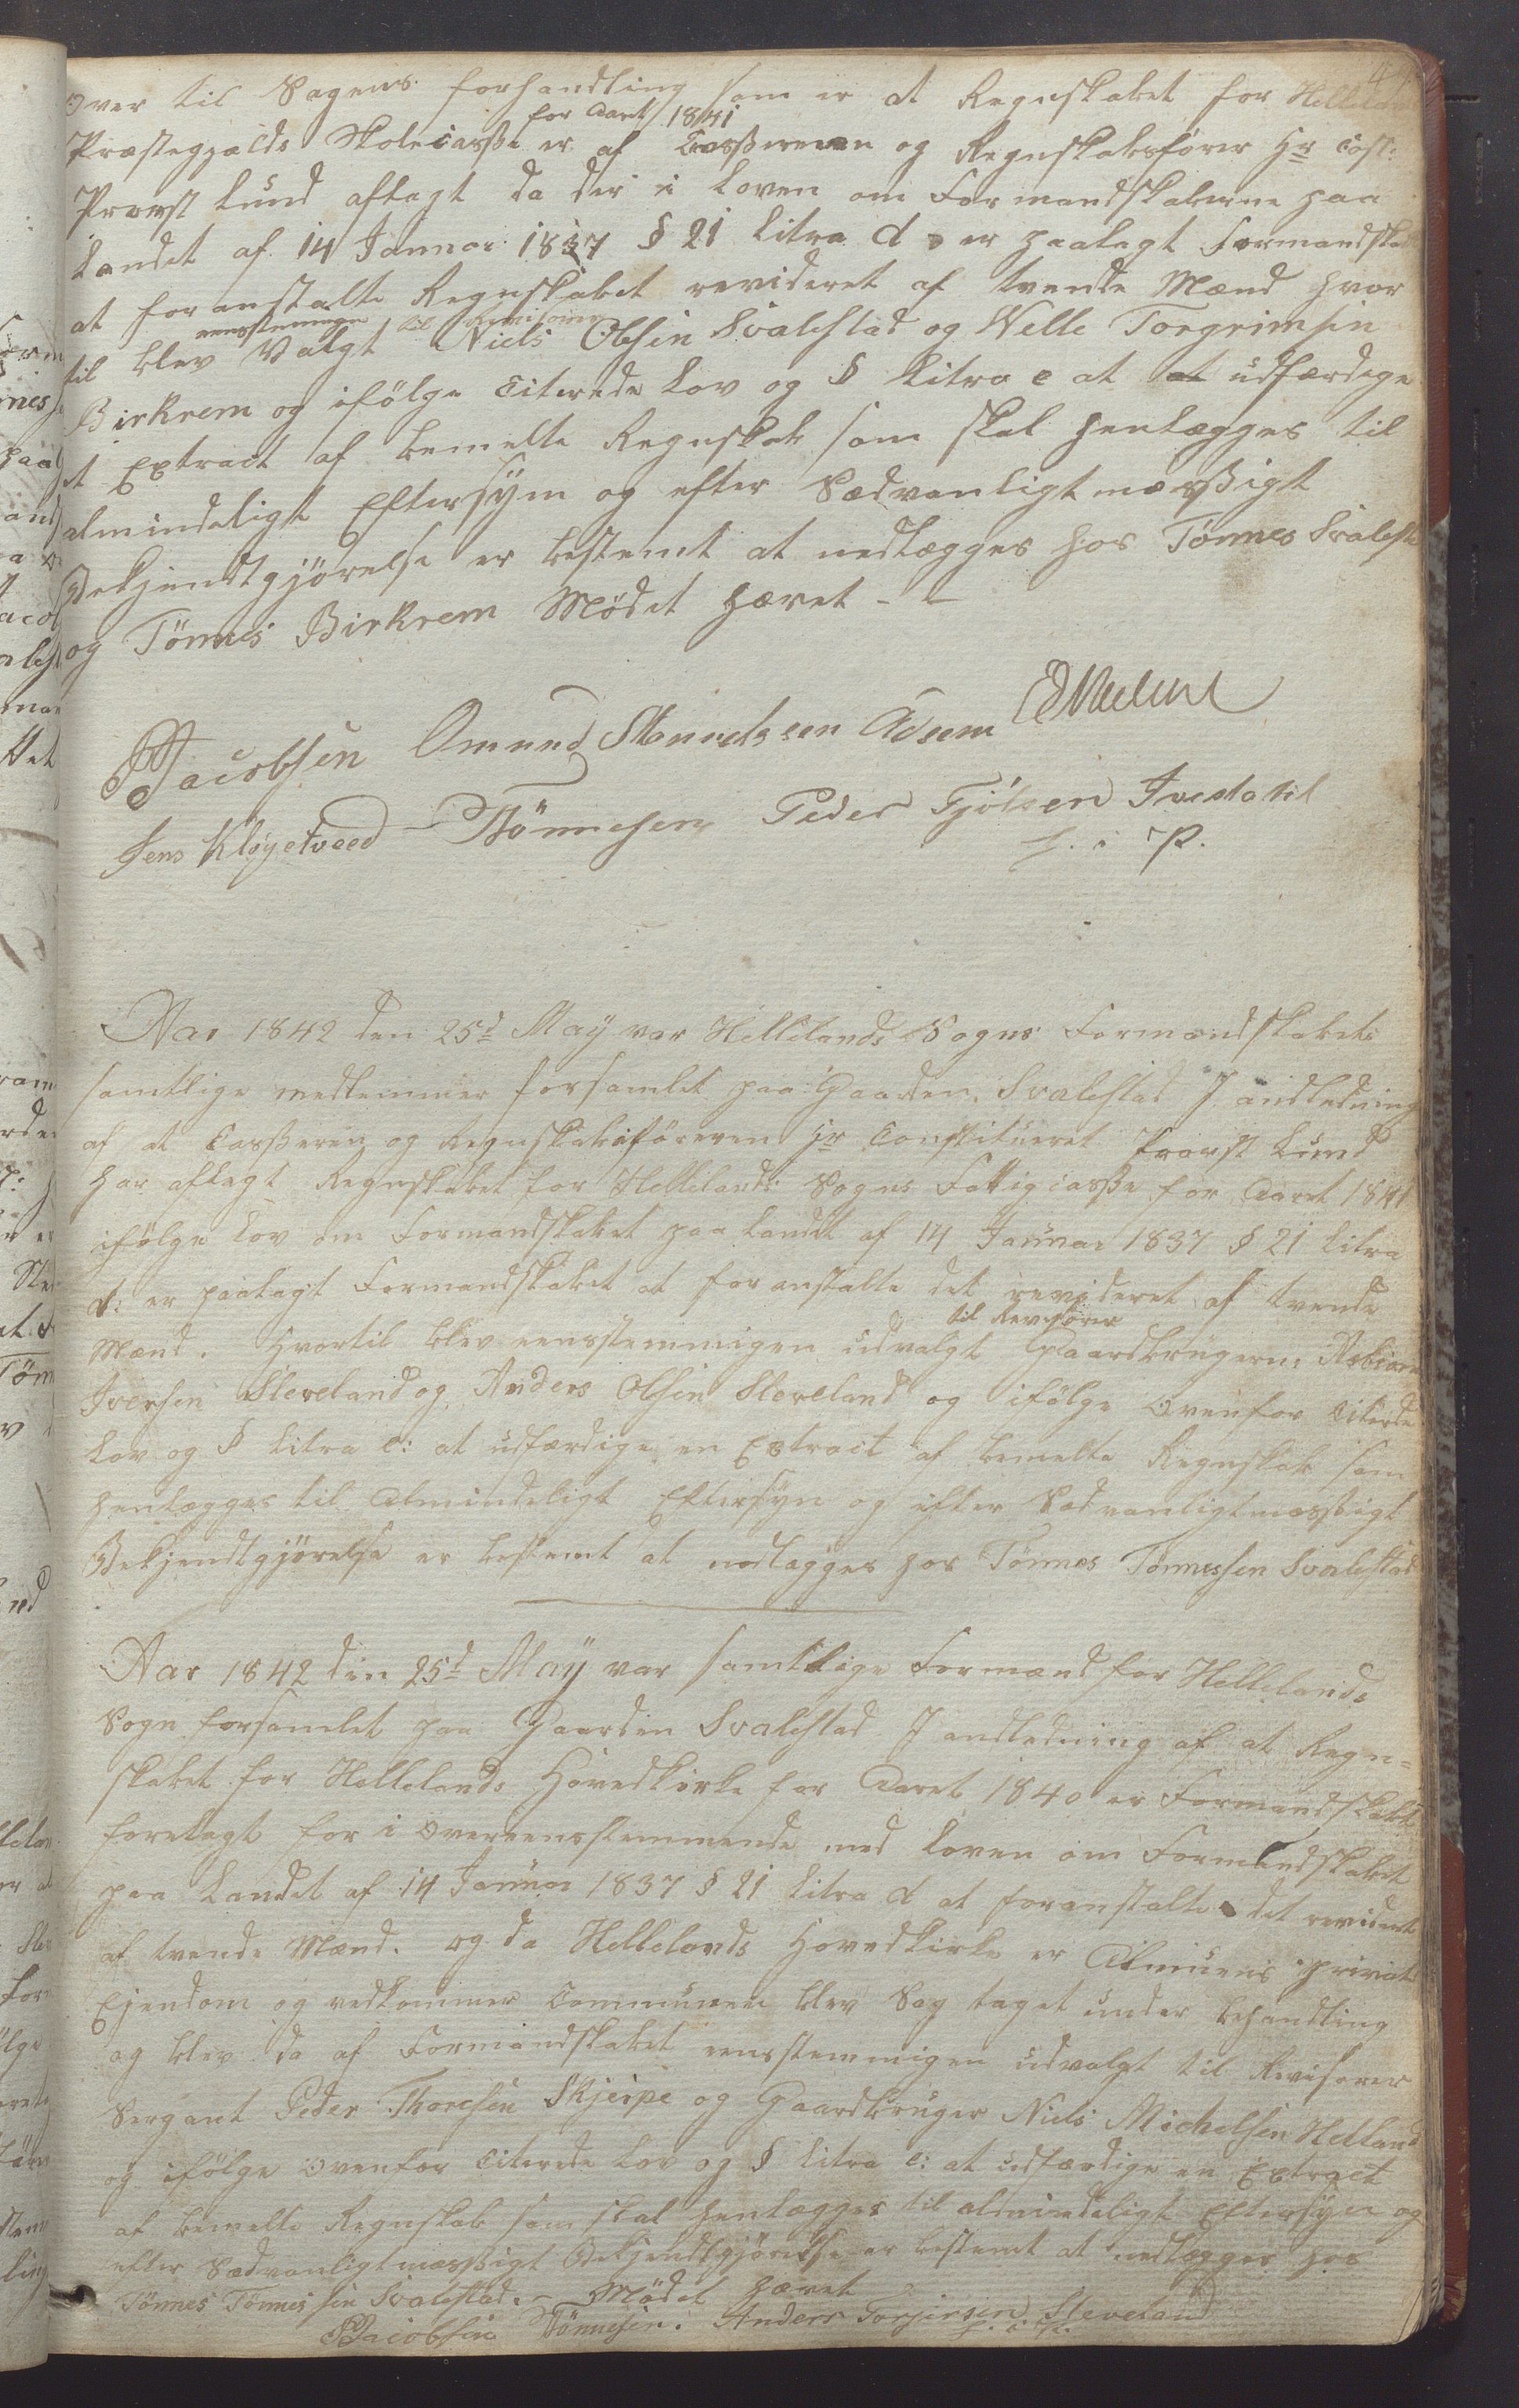 over til Sagens forhandling som er at Regnskabet for Hellelands
for Aaret 1841
Præstegjælds Skolecasse er af Casserenen og Regnskabsfører Hr Const:
Provst Lund aflagt da der i Loven om Formandskaberne paa
Landet af 14 Januar 1837 § 21 Litra d er paalagt Formandskabet
at foranstalte Regnskabet revideret af tvende Mænd hvor
eensstemmigen til Revisorer
til blev Valgt Niels Olsen Svalestad og Velle Torgrimsen
Birkrem og ifölge Citerede Lov og § Litra e at at udfærdige
et Extract af bemelte Regnskab som skal henlægges til
almindeligt Eftersÿn og efter Sædvanligtmæssigt
Bekjendtgjörelse er bestemt at nedlægges hos Tönnes Svalestad
og Tönnes Birkrem Mödet hævet - -
PJacobsen Omund Mundssen Adsem
Jens Kløgetveed Tönnesen Peder Fjölsen Ivestabil
f. i P.
Aar 1842 den 25d Maÿ var Hellelands Sogns Formandskabets
samtlige medlemmer forsamlet paa Gaarden Svalestad I andledning
af at Casseren og Regnskabsföreren Hr Constitueret Provst Lund
har aflagt Regnskabet for Hellelands Sogns Fattigcasse for Aaret 1841
ifölge Lov om Formandskabet paa Landet af 14 Januar 1837 § 21 Litra
d: er paalagt Formandskabet at foranstalte det revideret af tvende
til Revisorer
Mænd. Hvortil blev eensstemmigen udvalgt Gaardbrugerne Asbiørn
Iversen Sleveland og Anders Olsen Sleveland og ifölge ovenfor Citerede
Lov og § Litra e: at udfærdige en Extract af bemelte Regnskab som
henlægges til Almindeligt Eftersyn og efter Sædvanligtmæssigt
Bekjendtgjörelse er bestemt at nedlægges hos Tönnes Tönnessen Svalestad
Aar 1842 den 25d Maÿ var samtlige Formænd for Hellelands
Sogn forsamlet paa Gaarden Svalestad I andledning af at Regn=
skabet for Hellelands Hovedkirke for Aaret 1840 er Formandskabet
forelagt for i overeensstemmende med Loven om Formandskabet
paa Landet af 14 Januar 1837 § 21 Litra d at foranstalte det revideret
af tvende Mænd. og da Hellelands Hovedkirke er Almuens privat
Ejendom og vedkommer Communen blev Sag taget under behandling
og blev da af Formandskabet eensstemmigen udvalgt til Revisorer
Sergant Peder Thoresen Skjerpe og Gaardbruger Niels Michelsen Helland
og ifölge ovenfor Citerede Lov og § Litra e: at udfærdige en Extract
af bemelte Regnskab som skal henlægges til almindeligt Eftersÿn og
efter Sædvanligtmæssigt Bekjendtgjörelse er bestemt at nedlægges hos
Tönnes Tönnessen Svalestad. - Mödet hævet
PJacobsen Tönnesen. Anders Torjersen Sleveland